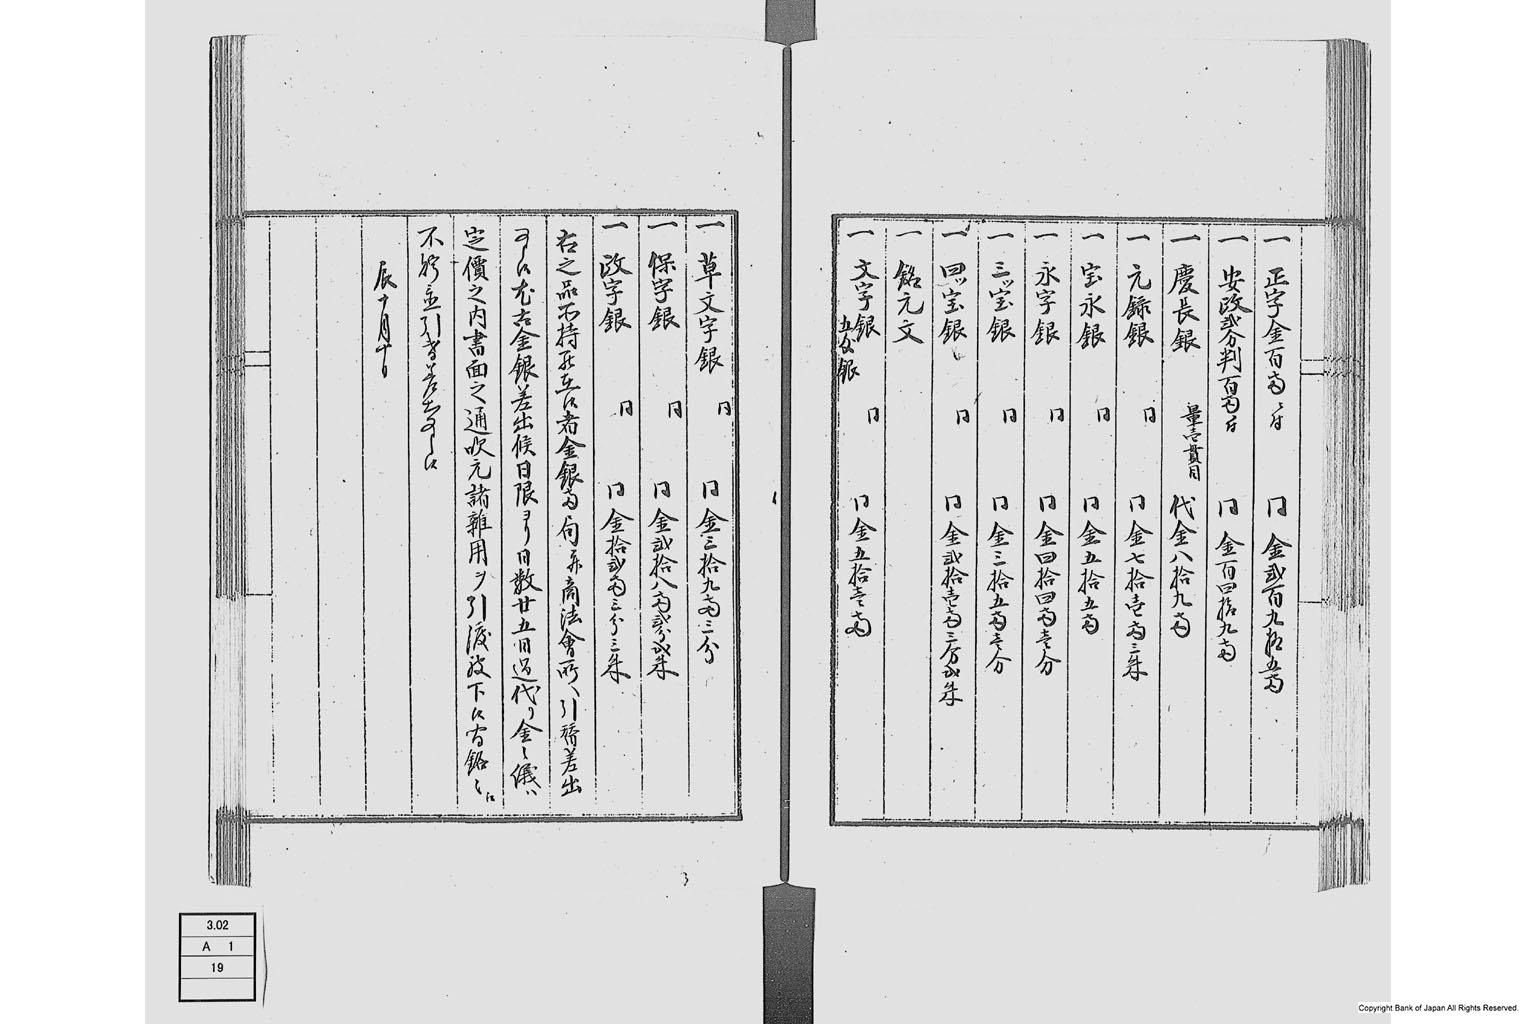 一 正字金百両ニ付 同 金弐百九拾五両
一 安政弐分判百両ニ付 同 金百四拾九両
一 慶長銀 量壱貫目 代金八拾九両
一 元録銀 同 同 金七拾壱両三朱
一 宝永銀 同 同 金五拾五両
一 永字銀 同 同 金四拾四両壱分
一 三ツ宝銀 同 同 金三拾五両壱分
一 四ツ宝銀 同 同 金弐拾壱両三分弐朱
一 銘元文
一 文字銀 五匁銀 同 同 金五拾壱両
一 草文字銀 同 同 金三拾九両三分
一 保字銀 同 同 金弐拾八両弐分弐朱
一 政字銀 同 同 金拾弐両三分三朱
右之品所持罷在候者金銀両局并商法會所ヘ引替差出
可申候尤古金銀差出候日限ヨリ日数廿五日過代り金之儀ハ
定價之内書面之通吹元諸雑用ヲ引渡被下候
不
辰十月廿日
3.02
A 1
19
Copyright Bank of Japan All Rights Reserved.